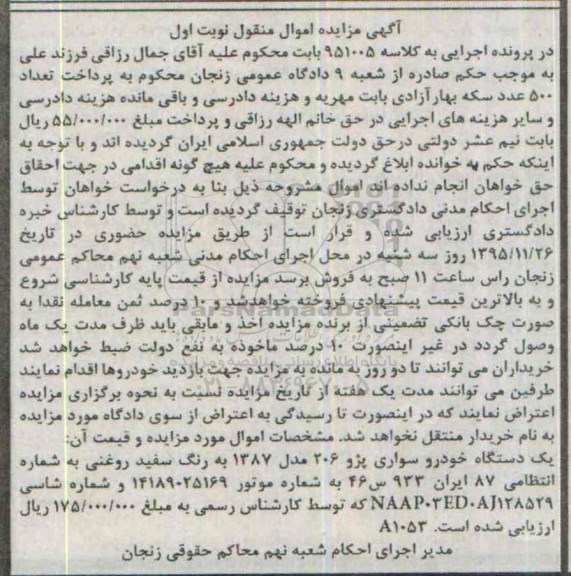 آگهی مزایده اموال منقول نوبت اول
در پرونده اجرایی به کلاسه ۹۵۱۰۰۵ بابت محکوم علیه آقای جمال رزاقی فرزند علی
به موجب حکم صادره از شعبه ۹ دادگاه عمومی زنجان محکوم به پرداخت تعداد
۵۰۰ عدد سکه بهار آزادی بابت مهریه و هزینه دادرسی و باقی مانده هزینه دادرسی
و سایر هزینه های اجرایی در حق خانم الهه رزاقی و پرداخت مبلغ ۵۵/۰۰۰/۰۰۰ ریال
بابت نیم عشر دولتی درحق دولت جمهوری اسلامی ایران گردیده اند و با توجه به
اینکه حکم به خوانده ابلاغ گردیده و محکوم علیه هیچ گونه اقدامی در جهت احقاق
حق خواهان انجام نداده اند اموال مشروحه ذیل بنا به درخواست خواهان توسط
اجرای احکام مدنی دادگستری زنجان توقیف گردیده است و توسط کارشناس خبره
دادگستری ارزیابی شده و قرار است از طریق مزایده حضوری در تاریخ
۱۳۹۵/۱۱/۲۶ روز سه شنبه در محل اجرای احکام مدنی شعبه نهم محاکم عمومی
زنجان راس ساعت ۱۱ صبح به فروش برسد مزایده از قیمت پایه کارشناسی شروع
و به بالاترین قیمت پیشنهادی فروخته خواهدشد و ۱۰ درصد ثمن معامله نقدا به
صورت چک بانکی تضمینی از برنده مزایده اخذ و مابقی باید ظرف مدت یک ماه
وصول گردد در غیر اینصورت ۱۰ درصد ماخوذه به نفع دولت ضبط خواهد شد
خریداران می توانند تا دو روز به مانده به مزایده جهت بازدید خودروها اقدام نمایند
طرفین می توانند مدت یک هفته از تاریخ مزایده نسبت به نحوه برگزاری مزایده
اعتراض نمایند که در اینصورت تا رسیدگی به اعتراض از سوی دادگاه مورد مزایده
به نام خریدار منتقل نخواهد شد. مشخصات اموال مورد مزایده و قیمت آن:
یک دستگاه خودرو سواری پژو ۲۰۶ مدل ۱۳۸۷ به رنگ سفید روغنی به شماره
انتظامی ۸۷ ایران ۹۳۳ س۴۶ به شماره موتور ۱۴۱۸۹۰۲۵۱۶۹ و شماره شاسی
NAAP۰۳ED۰AJ۱۲۸۵۲۹ که توسط کارشناس رسمی به مبلغ ۱۷۵/۰۰۰/۰۰۰ ریال
ارزیابی شده است. A۱۰۵۳
مدیر اجرای احکام شعبه نهم محاکم حقوقی زنجان
ParsNamadData